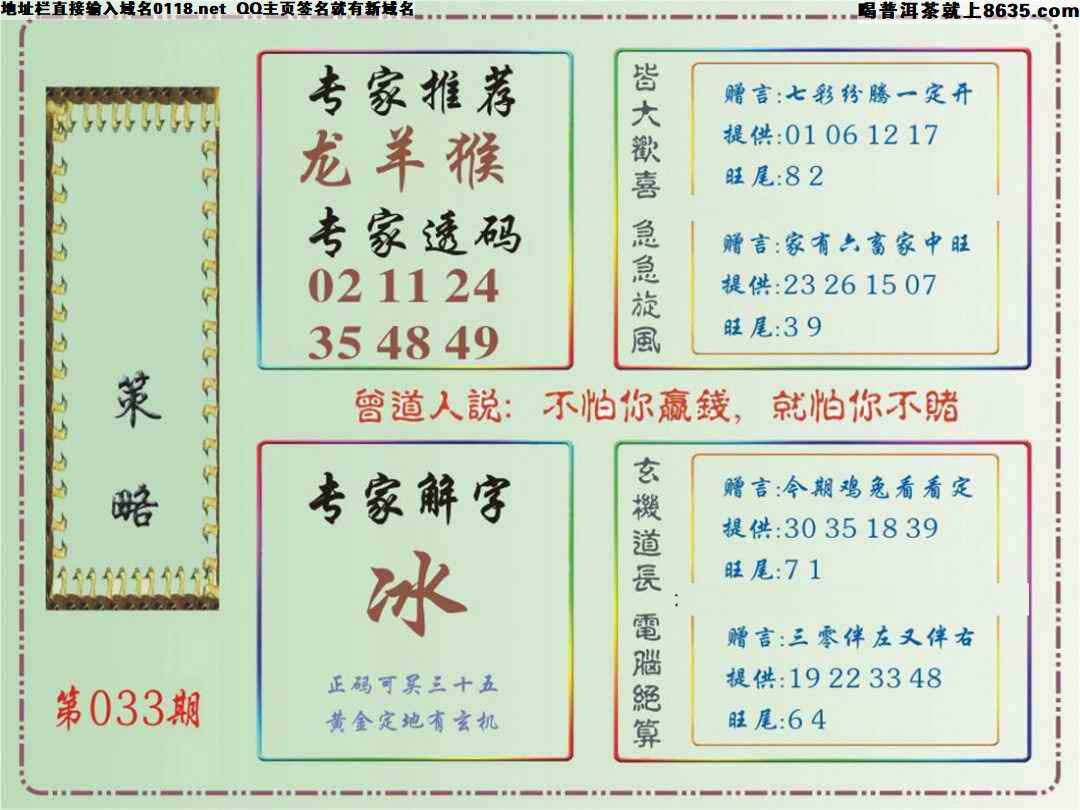 地址栏直接输入域名0118.net QQ主页签名就有新域名
喝普洱茶就上8635.com
策
略
第033期
专家推荐
龙羊猴
专家透码
02 11 24
35 48 49
皆大歡喜
赠言:七彩纷腾一定开
提供:01 06 12 17
旺尾:8 2
急急旋風
赠言:家有六畜家中旺
提供:23 26 15 07
旺尾:3 9
曾道人説: 不怕你赢錢, 就怕你不賭
专家解字
冰
正码可买三十五
黄金定地有玄机
玄機道長
赠言:今期鸡兔看看定
提供:30 35 18 39
旺尾:7 1
:
電腦絕算
赠言:三零伴左又伴右
提供:19 22 33 48
旺尾:6 4